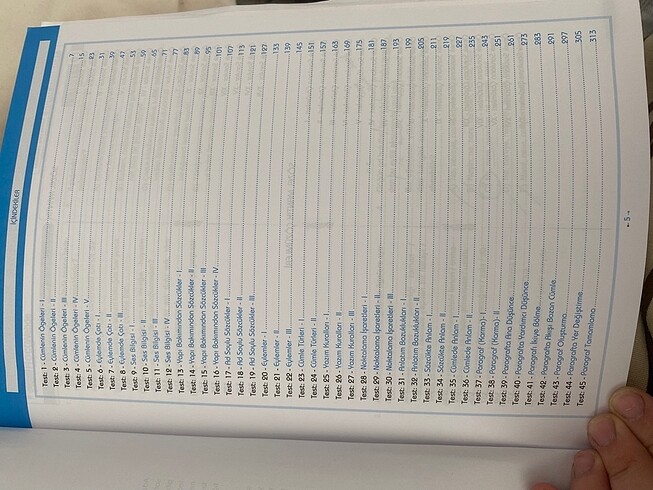 İÇİNDEKİLER
Test: 1 - Cümlenin Ögeleri - I 7
Test: 2 - Cümlenin Ögeleri - II 15
Test: 3 - Cümlenin Ögeleri - III 23
Test: 4 - Cümlenin Ögeleri - IV 31
Test: 5 - Cümlenin Ögeleri - V 39
Test: 6 - Eylemde Çatı - I 47
Test: 7 - Eylemde Çatı - II 53
Test: 8 - Eylemde Çatı - III 59
Test: 9 - Ses Bilgisi - I 65
Test: 10 - Ses Bilgisi - II 71
Test: 11 - Ses Bilgisi - III 77
Test: 12 - Ses Bilgisi - IV 83
Test: 13 - Yapı Bakımından Sözcükler - I 89
Test: 14 - Yapı Bakımından Sözcükler - II 95
Test: 15 - Yapı Bakımından Sözcükler - III 101
Test: 16 - Yapı Bakımından Sözcükler - IV 107
Test: 17 - Ad Soylu Sözcükler - I 113
Test: 18 - Ad Soylu Sözcükler - II 121
Test: 19 - Ad Soylu Sözcükler - III 127
Test: 20 - Eylemler - I 133
Test: 21 - Eylemler - II 139
Test: 22 - Eylemler - III 145
Test: 23 - Cümle Türleri - I 151
Test: 24 - Cümle Türleri - II 157
Test: 25 - Yazım Kuralları - I 163
Test: 26 - Yazım Kuralları - II 169
Test: 27 - Yazım Kuralları - III 175
Test: 28 - Noktalama İşaretleri - I 181
Test: 29 - Noktalama İşaretleri - II 187
Test: 30 - Noktalama İşaretleri - III 193
Test: 31 - Anlatım Bozuklukları - I 199
Test: 32 - Anlatım Bozuklukları - II 205
Test: 33 - Sözcükte Anlam - I 211
Test: 34 - Sözcükte Anlam - II 219
Test: 35 - Cümlede Anlam - I 227
Test: 36 - Cümlede Anlam - II 235
Test: 37 - Paragraf (Karma) - I 243
Test: 38 - Paragraf (Karma) - II 251
Test: 39 - Paragrafta Ana Düşünce 261
Test: 40 - Paragrafta Yardımcı Düşünce 273
Test: 41 - Paragrafı İkiye Bölme 283
Test: 42 - Paragrafta Akışı Bozan Cümle 291
Test: 43 - Paragraf Oluşturma 297
Test: 44 - Paragrafta Yer Değiştirme 305
Test: 45 - Paragraf Tamamlama 313
5